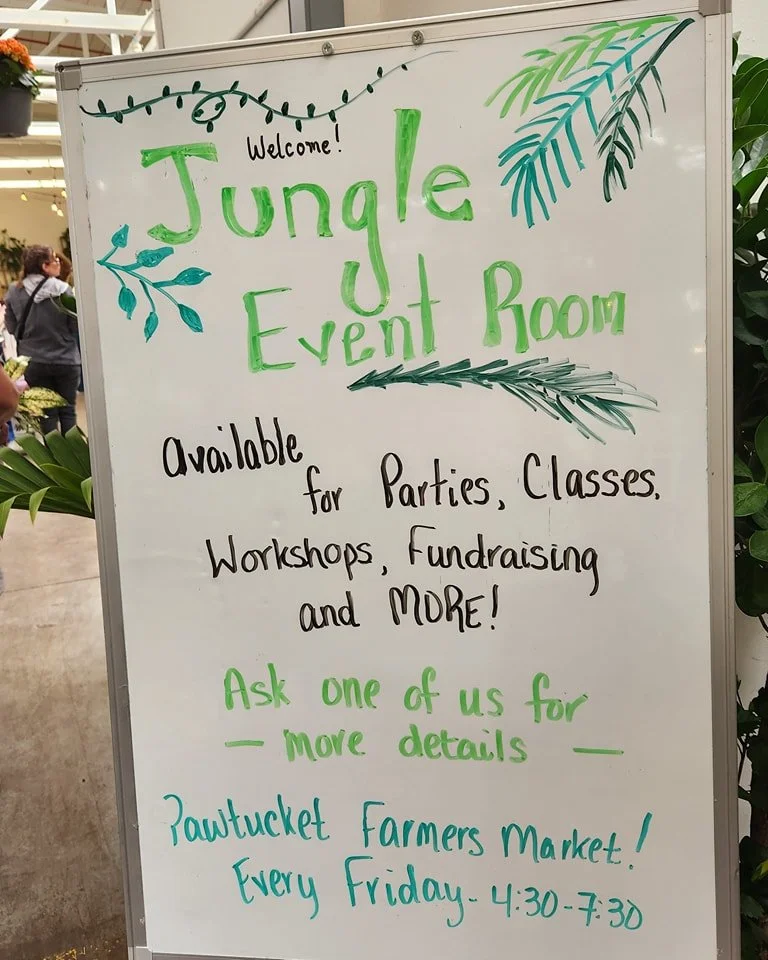 Welcome!
Jungle
Event Room
available
for Parties, Classes,
Workshops, Fundraising
and MORE!
Ask one of us for
— more details —
Pawtucket Farmers Market!
Every Friday - 4:30-7:30